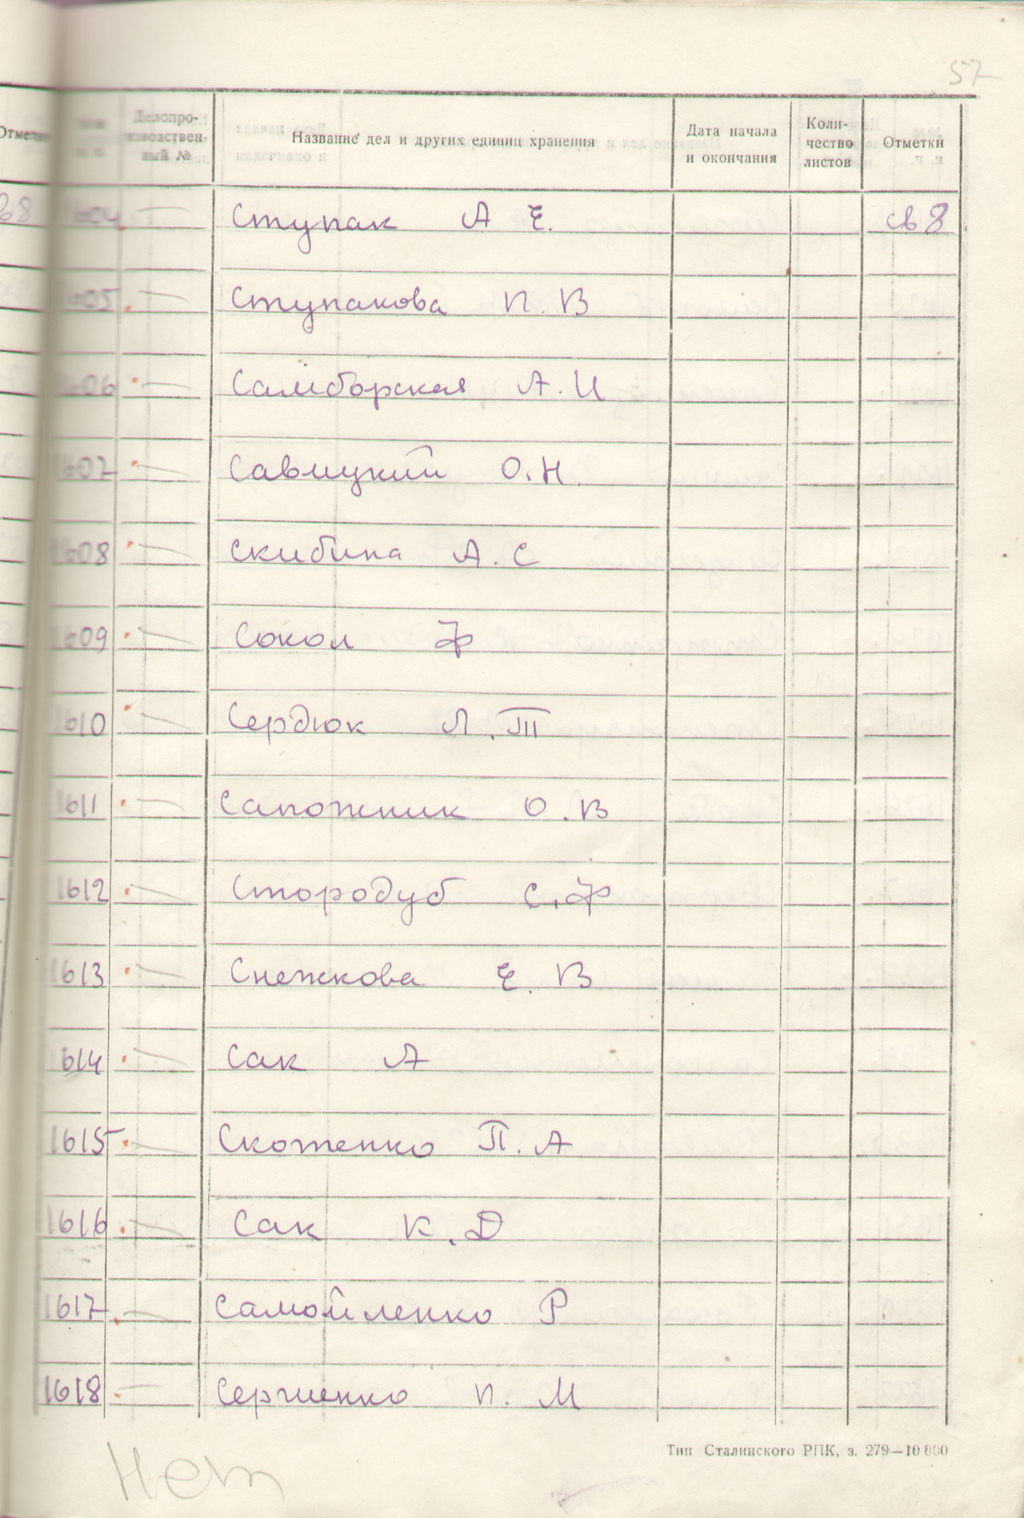 57
Отметки
Делопро-
изводствен-
ный №
Название дел и других единиц хранения
Дата начала
и окончания
Коли-
чество
листов
Отметки
1604 — Ступак А Е. св 8
1605 — Ступакова П. В
1606 — Самборская А. И
1607 — Савицкий О. Н
1608 — Скибина А. С
1609 — Сокол Ф
1610 — Сердюк Л. Т
1611 — Сапожник О. В
1612 — Стородуб С. Ф
1613 — Снежкова Е. В
1614 — Сак А
1615 — Скотенко П. А
1616 — Сак К. Д
1617 — Самойленко Р
1618 — Сергиенко П. М
Тип Сталинского РПК, з. 279—10 000
Нет